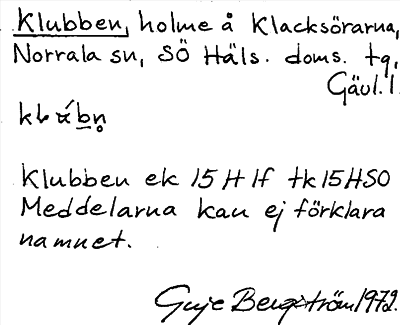 Klubben, holme å Klacksörarna,
Norrala sn, SÖ Häls. doms. tg,
Gävl. l.
Klubben ek 15 H 1f tk 15HSO
Meddelarna kan ej förklara
namnet.
Guje Bergström 1972.